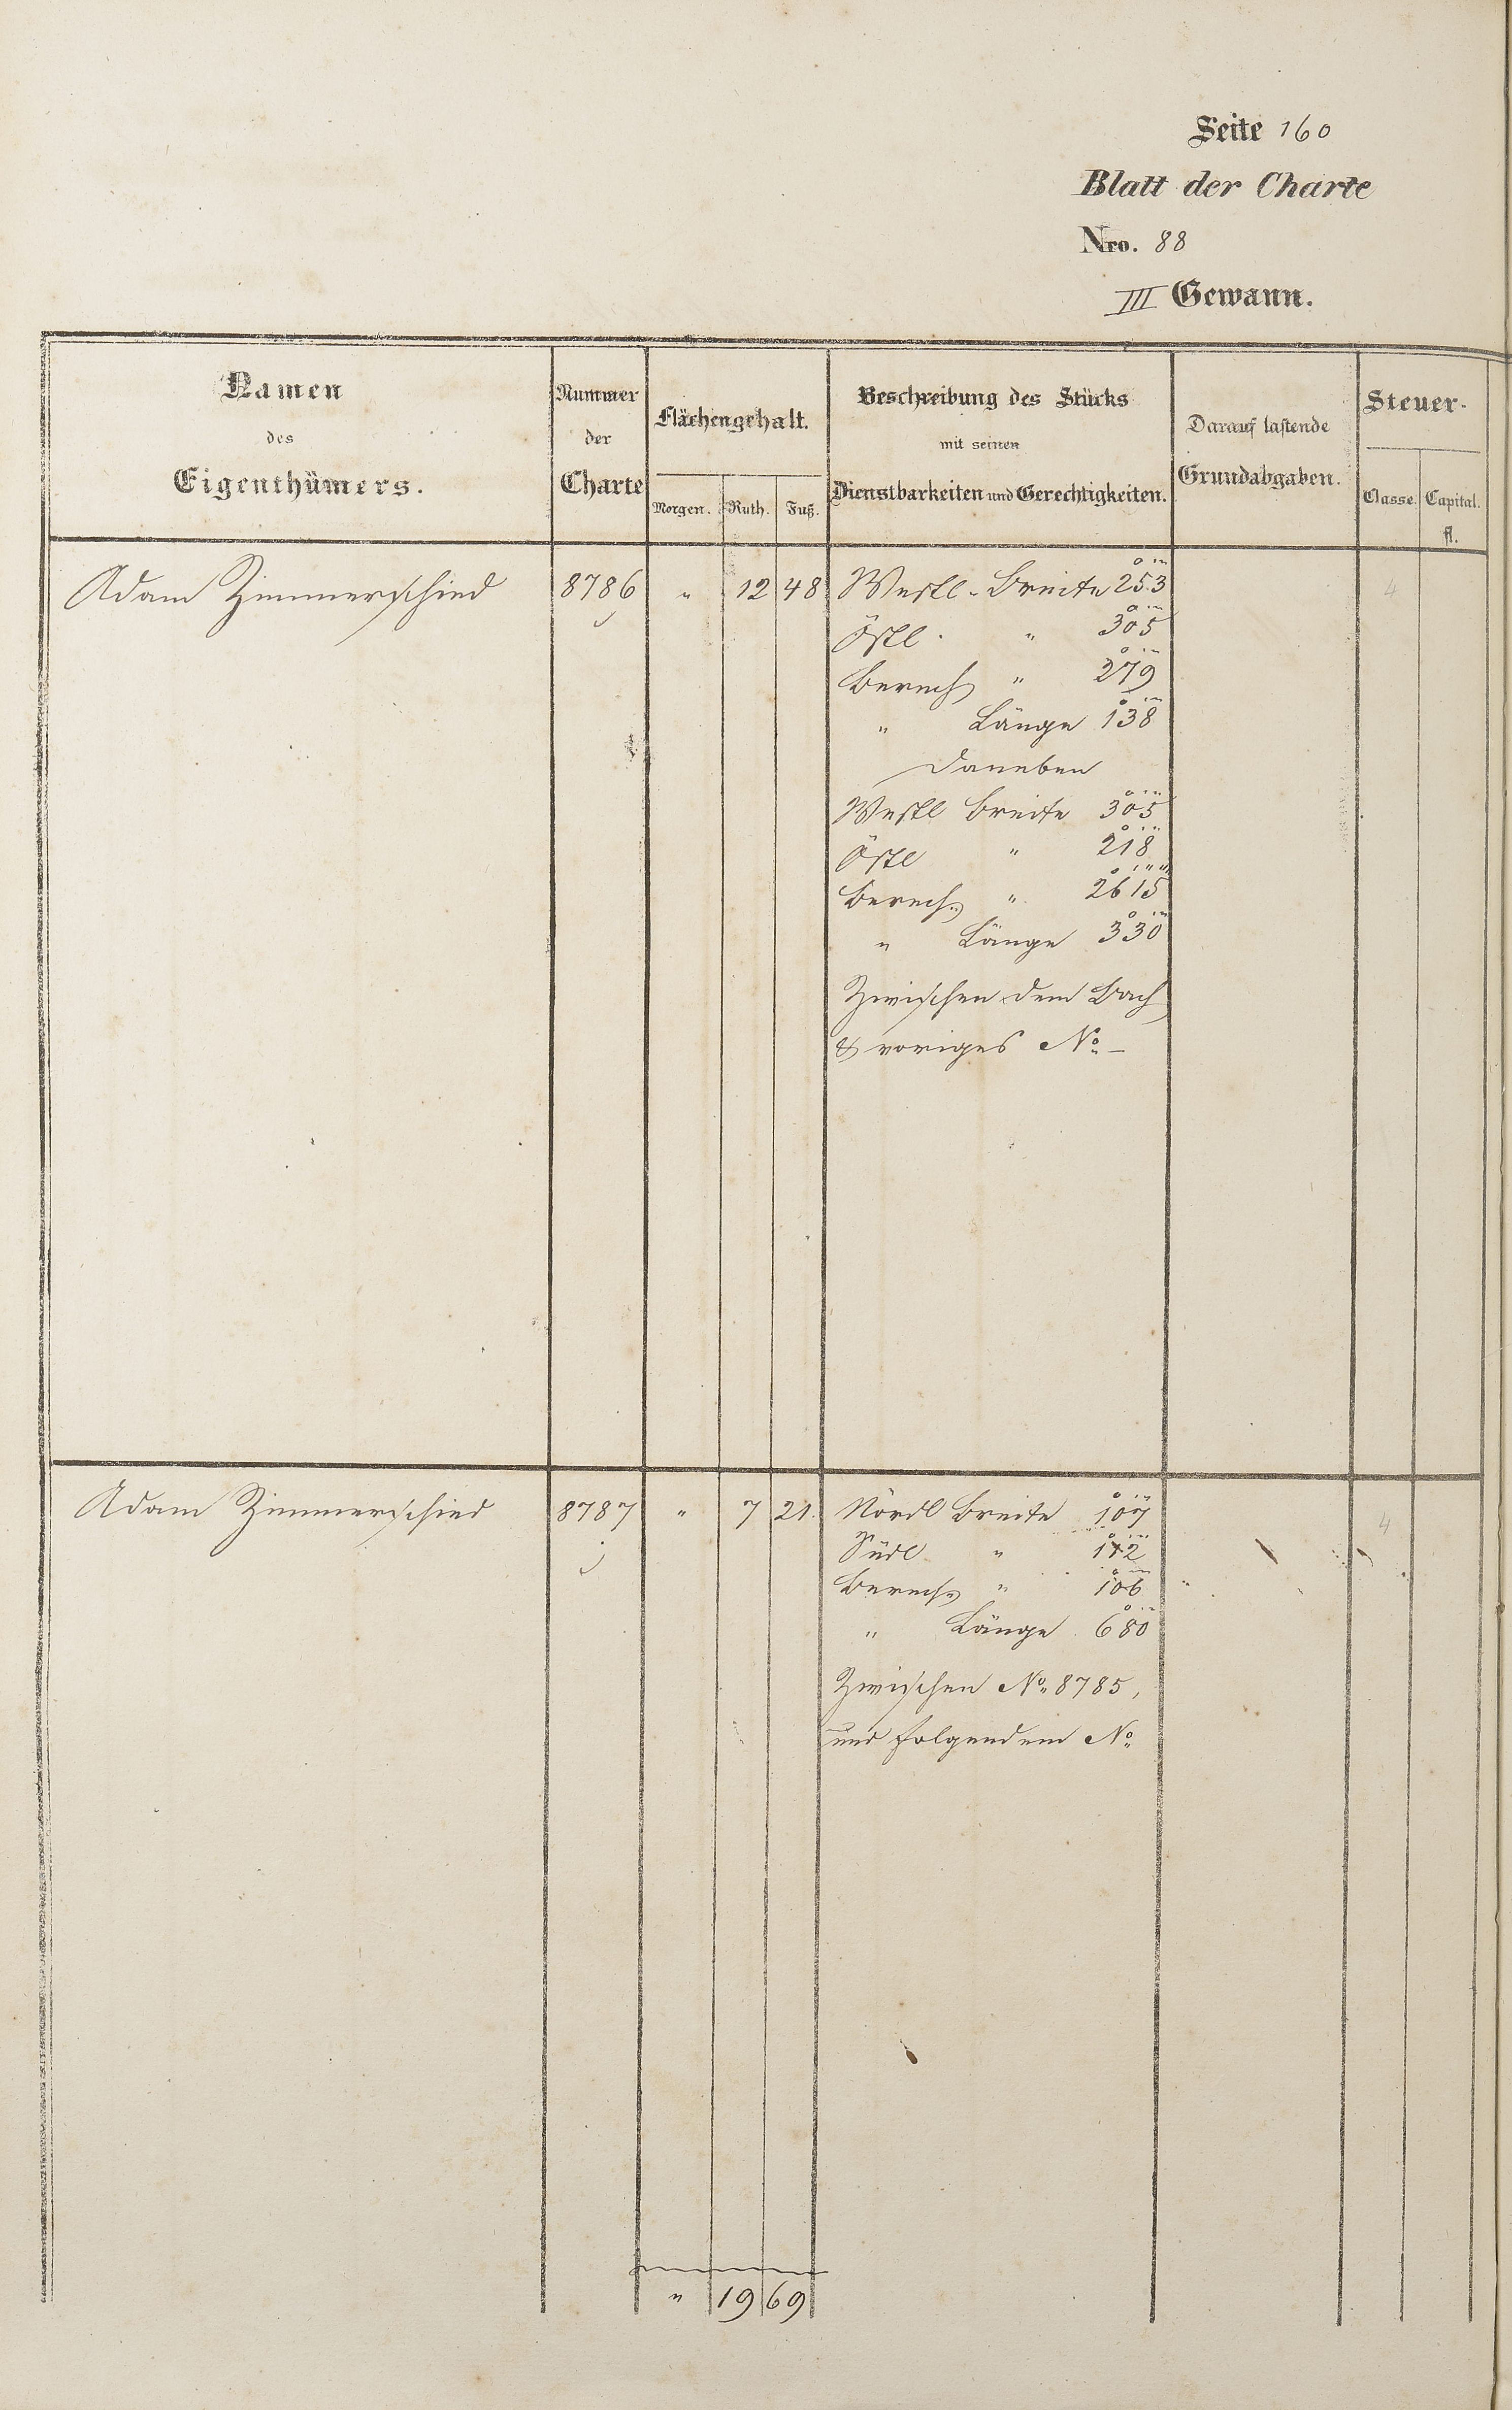 Seite 160
Blatt der Charte
Nro. 88
III Gewann.
Namen des Eigenthümers.
Nummer der Charte
Flächengehalt.
Morgen. Ruth. Fuß.
Beschreibung des Stücks mit seinen Dienstbarkeiten und Gerechtigkeiten.
Darauf lastende Grundabgaben.
Steuer-
Classe. Capital. fl.
Adam Zimmerschied 8786 " 12 48 Westl. Breite 253 4
Östl. " 305
Berech " 279
" Länge 138
Daneben
Westl Breite 305
Östl " 218
Berech. " 2615
" Länge 330
Zwischen dem Bach
& voriges No. –
Adam Zimmerschied 8787 " 7 21. Nördl Breite 107 4
Südl " 1 2
Berech. " 106
" Länge 680
Zwischen No. 8785,
und folgendem No.
" 19 69